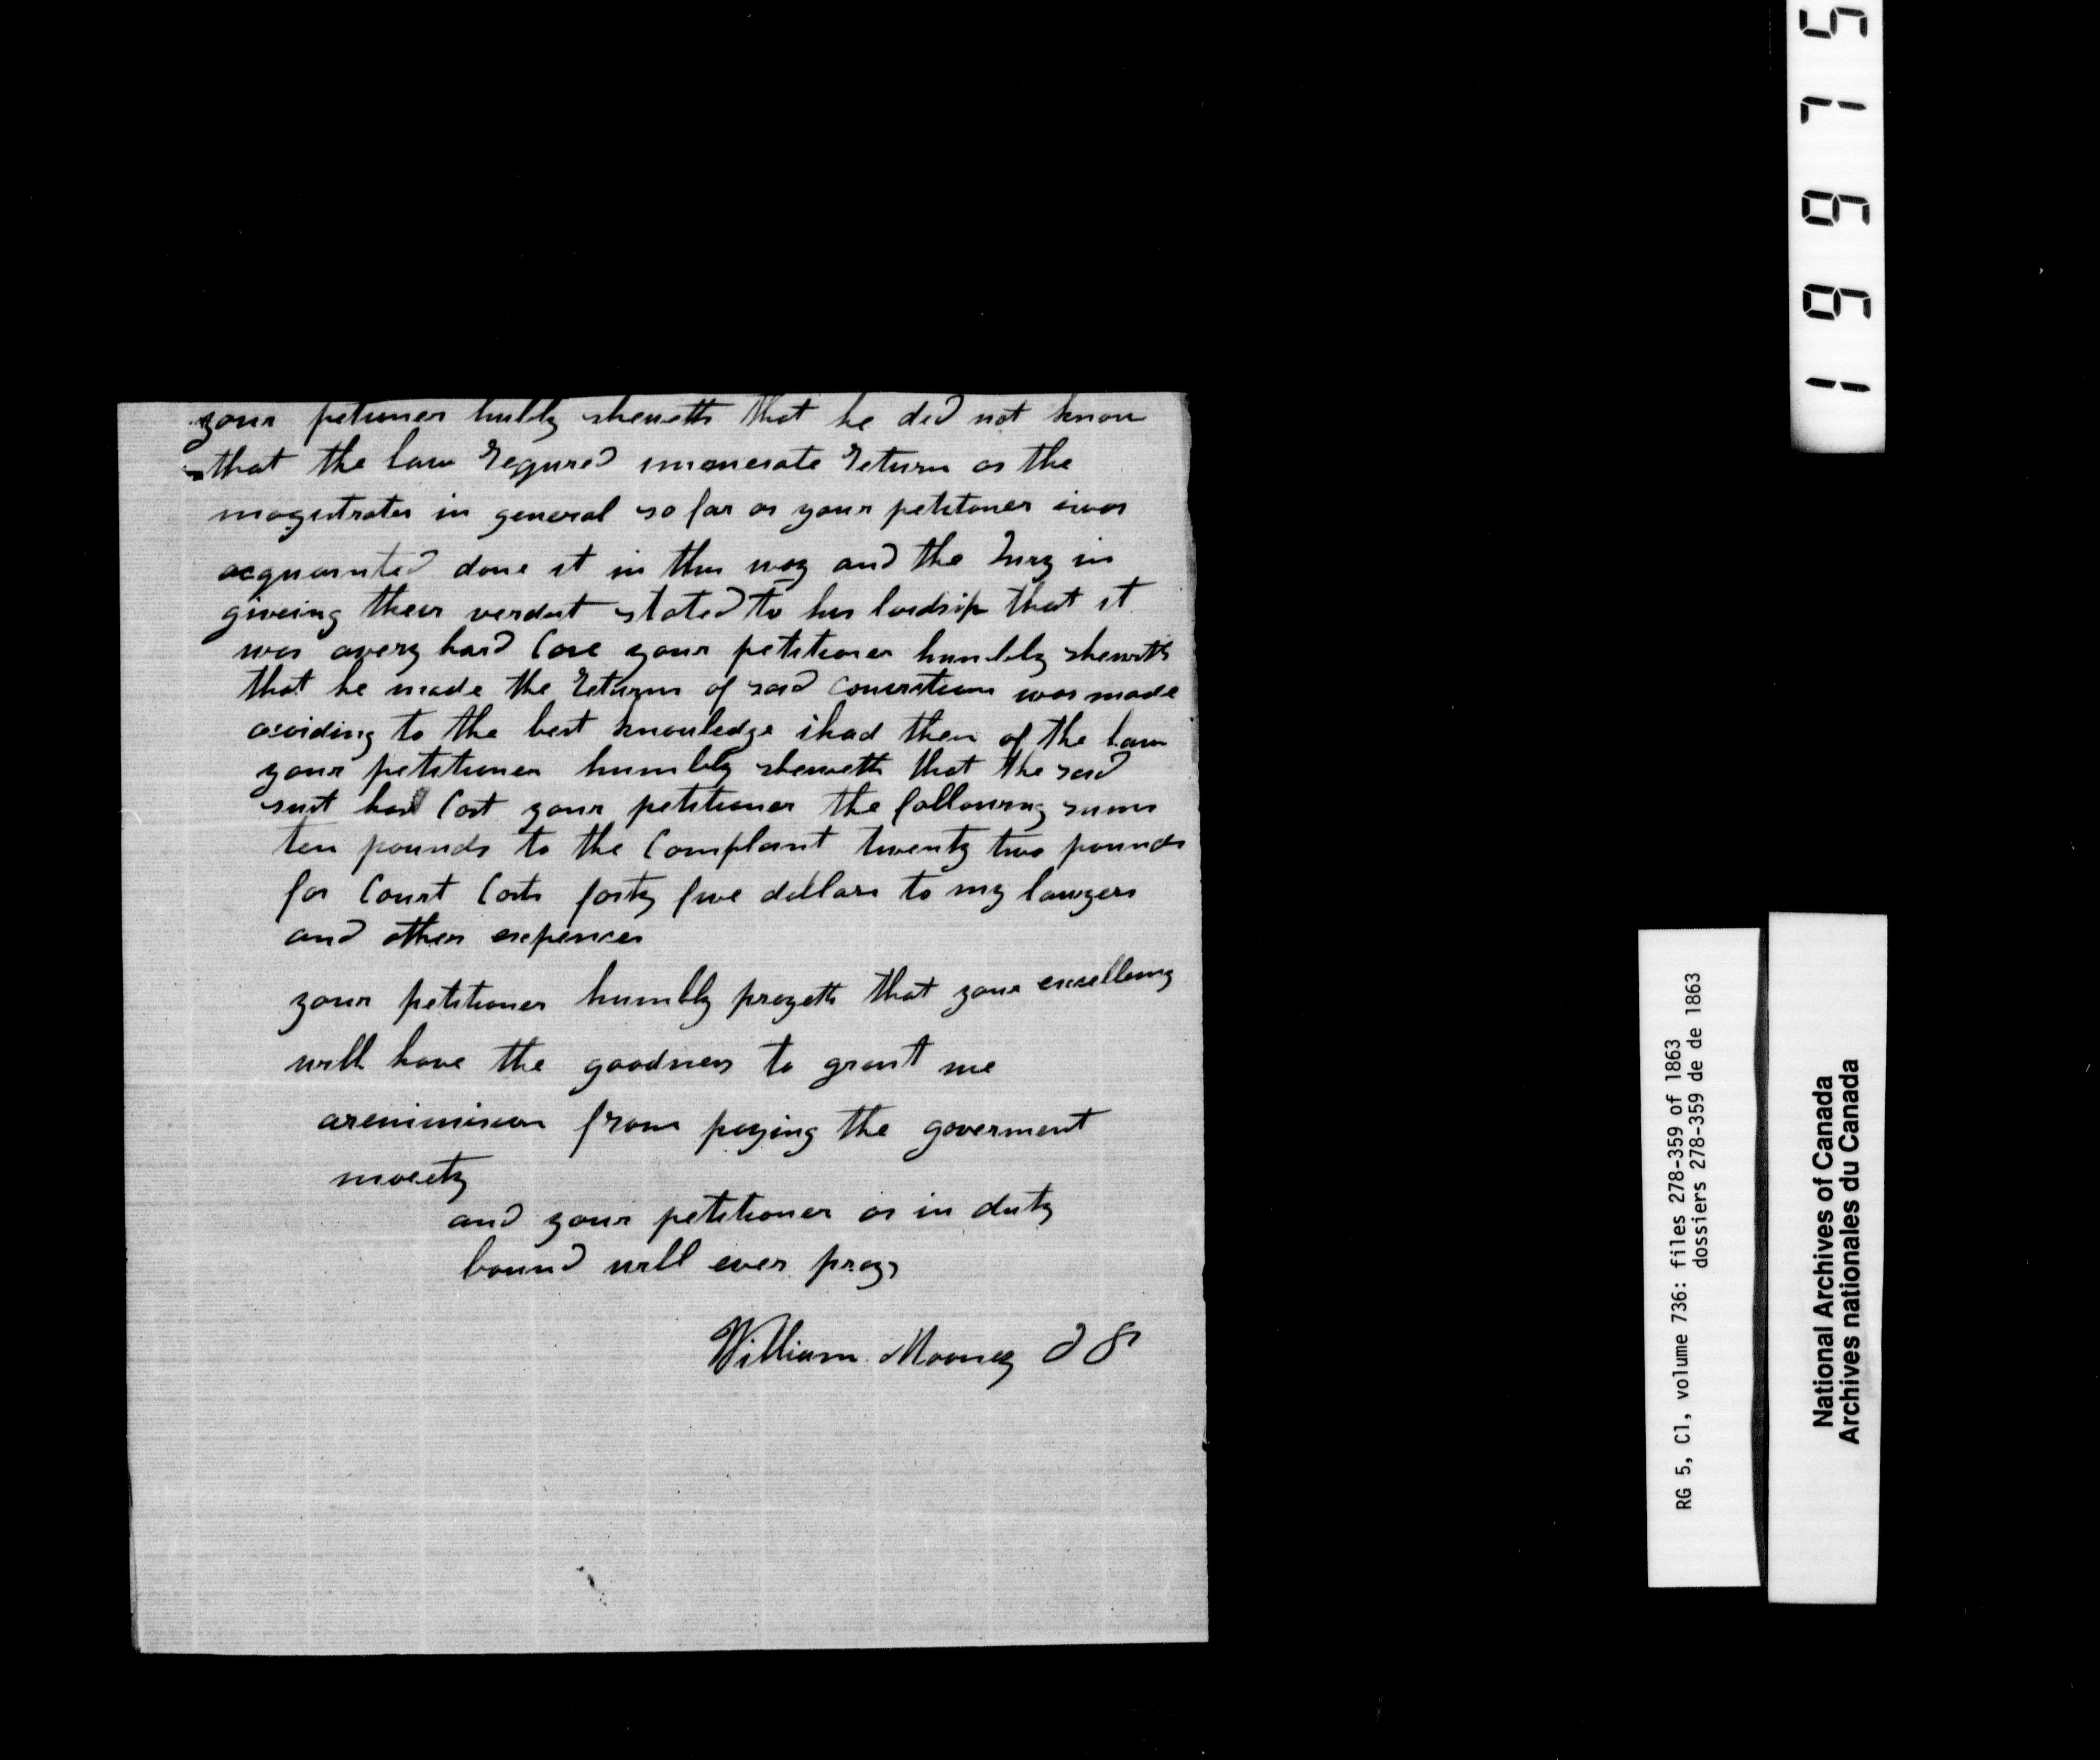 your petiuner hubly sheweth that he did not know
that the law Requred imenerate Return as the
magistrates in general so far as your petitoner was
acquainted done it in this way and the Jury in
giveing their verdict stated to his lordsip that it
was avery hard Case your petitioner humbly sheweth
that he made the Returns of said Conviction was made
acording to the best knowledge ihad then of the law
your petitioner humbly sheweth that the said
suit has Cost your petitioner the following sums
ten pounds to the Complaint twenty two pounds
for Court Costs forty five dollars to my lawyers
and other expences
your petitioner humbly prayeth that your excellency
will have the goodness to grant me
aremimision from paying the goverment
moeety
and your petitioner as in duty
bound will ever pray
William Mooney
19975
RG 5, C1, volume 736: files 278-359 of 1863
dossiers 278-359 de de 1863
National Archives of Canada
Archives nationales du Canada